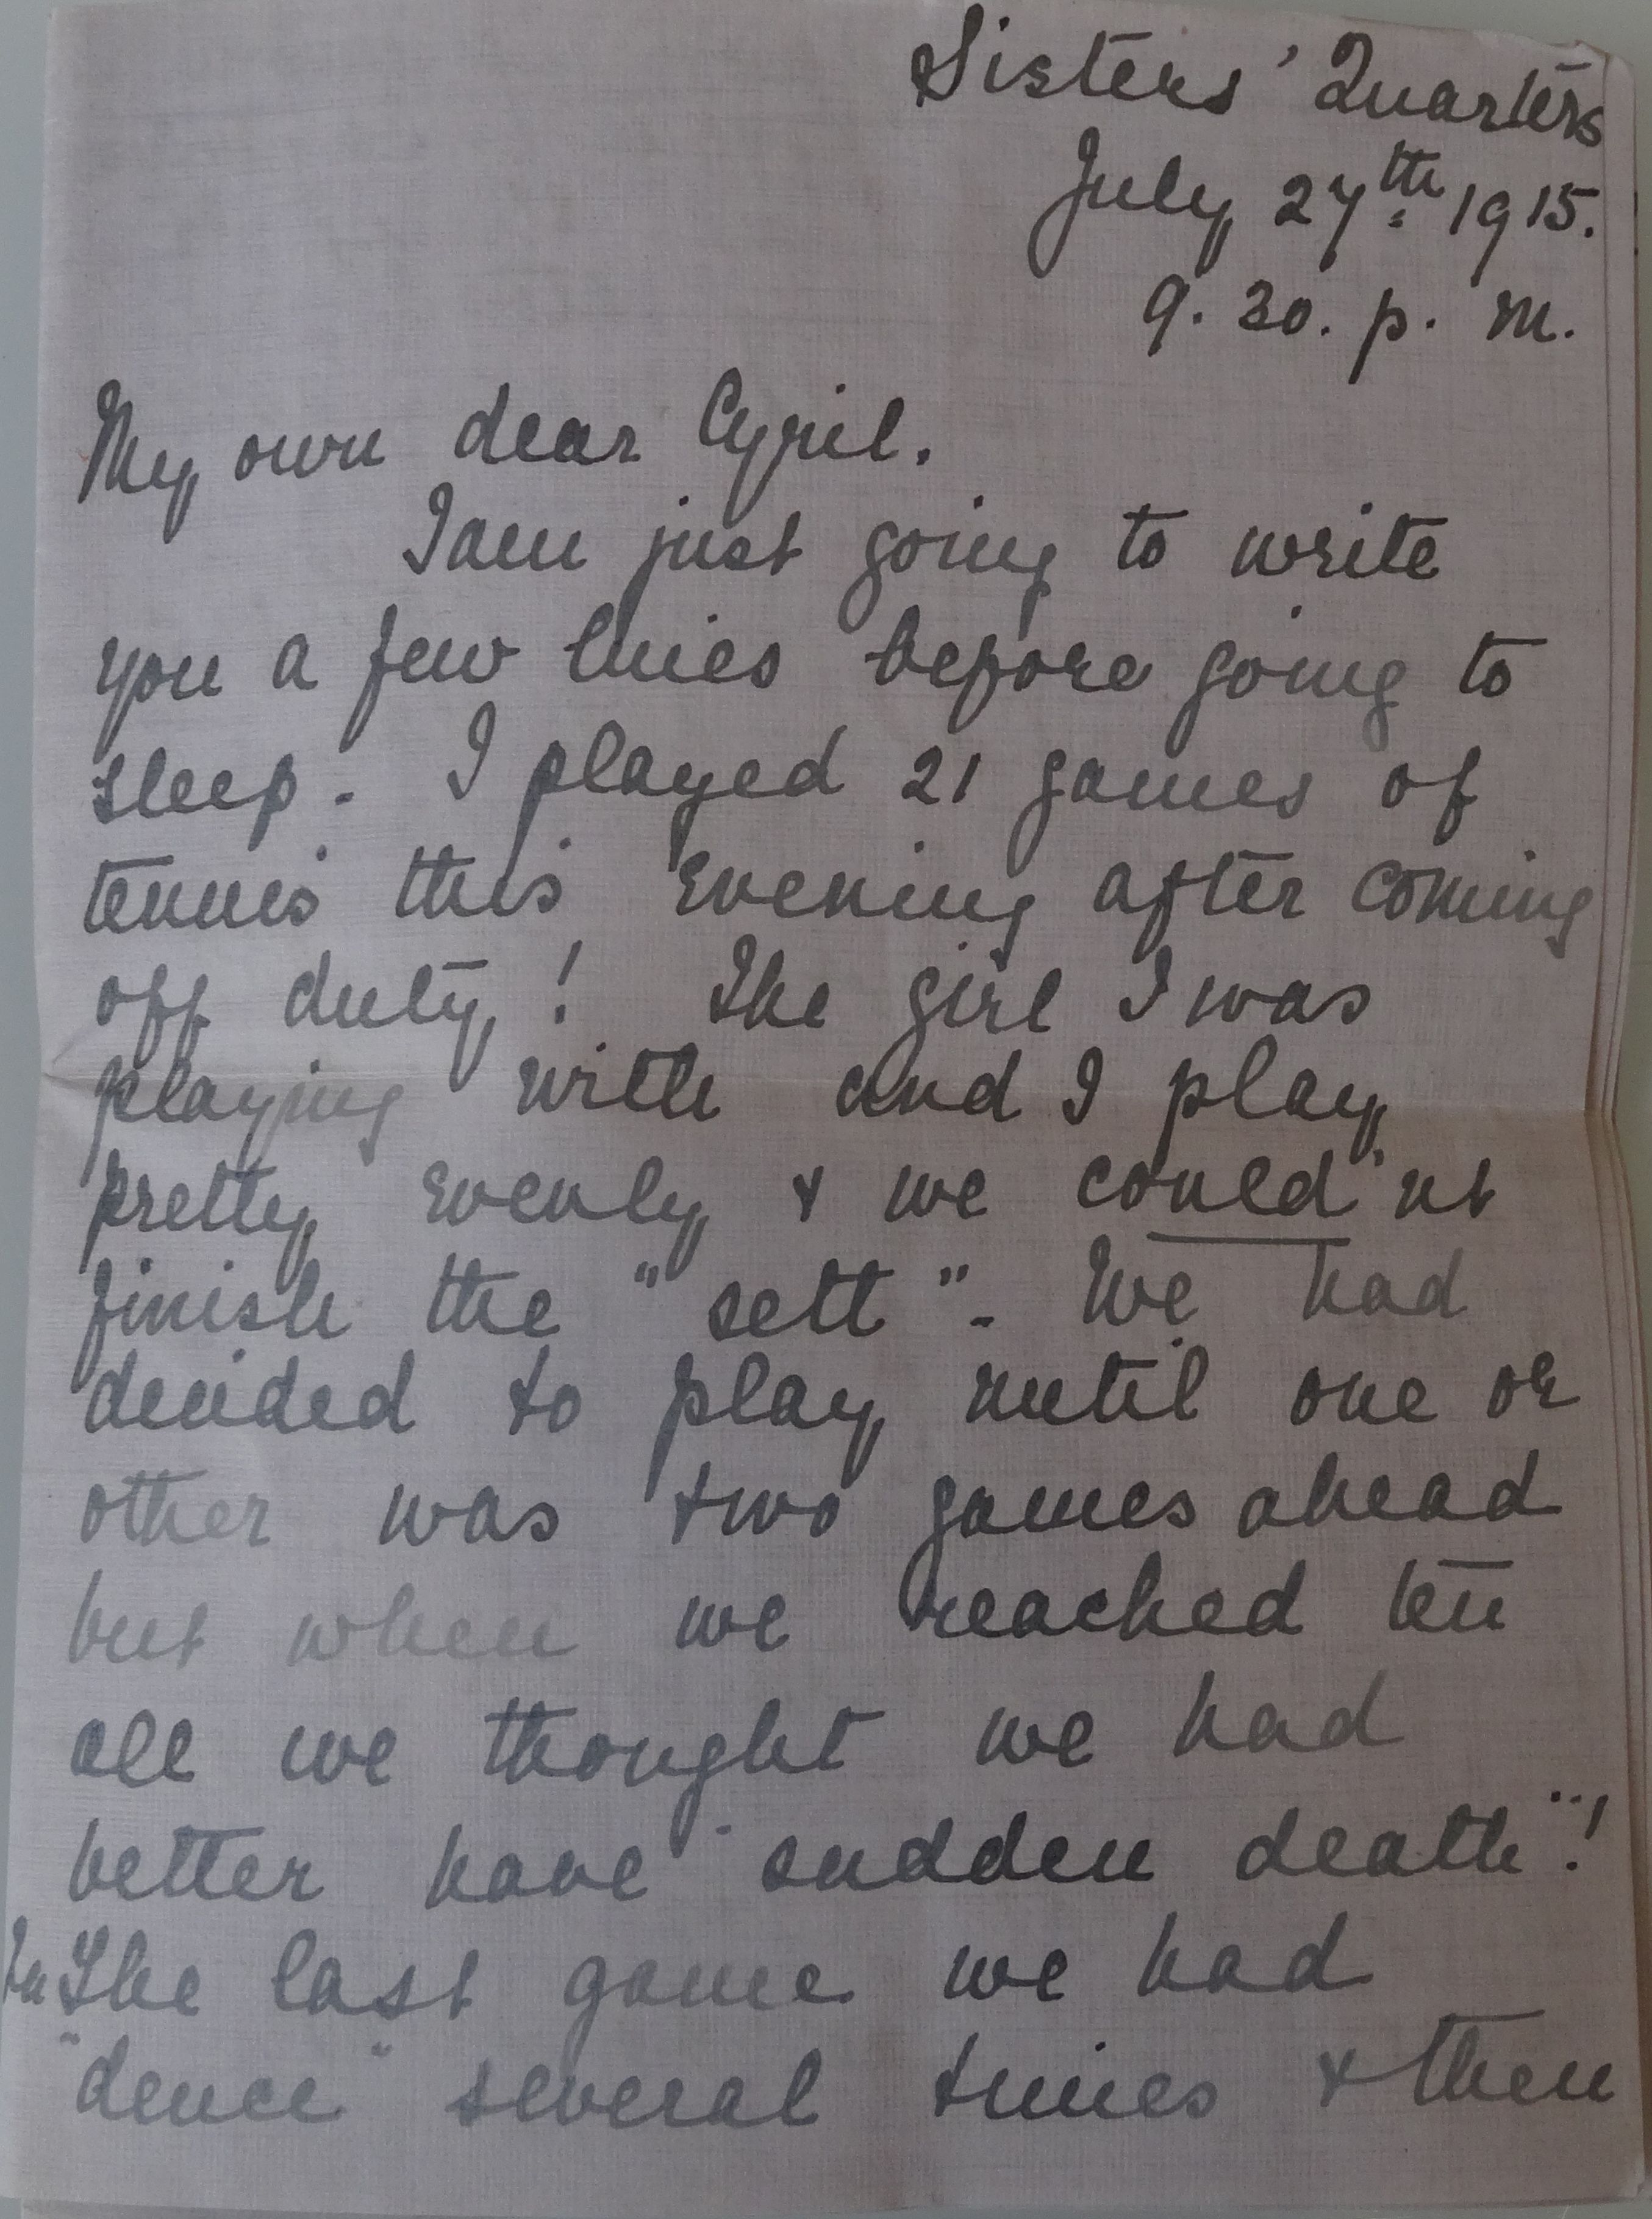 Sisters' Quarters
July 27th 1915.
9. 30. p. m.
My own dear Cyril.
I am just going to write
you a few lines before going to
sleep. I played 21 games of
tennis this evening after coming
off duty! The girl I was
playing with and I play
pretty evenly & we could'nt
finish the "sett". We had
decided to play until one or
other was two games ahead
but when we reached ten
all we thought we had
better have "sudden death"!
In The last game we had
"deuce" several times & then